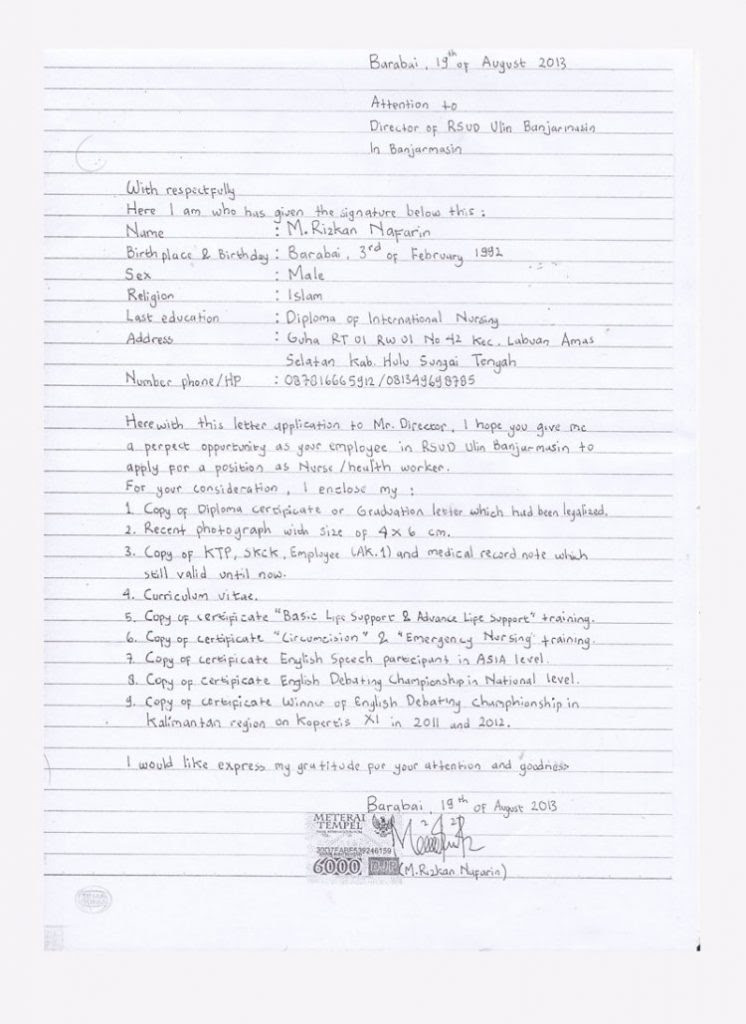 Barabai, 19th of August 2013
Attention to
Director of RSUD Ulin Banjarmasin
In Banjarmasin
With respectfully
Here I am who has given the signature below this :
Name : M. Rizkan Nafarin
Birth place & Birthday : Barabai, 3rd of February 1992
Sex : Male
Religion : Islam
Last education : Diploma of International Nursing
Address : Guha RT 01 RW 01 No 42 Kec. Labuan Amas
Selatan Kab. Hulu Sungai Tengah
Number phone/HP : 087816665912 / 081349698785
Here with this letter application to Mr. Director, I hope you give me
a perpect opportunity as your employee in RSUD Ulin Banjarmasin to
apply for a position as Nurse / health worker.
For your consideration, I enclose my :
1. Copy of Diploma certificate or Graduation letter which had been legalized.
2. Recent photograph with size of 4 x 6 cm.
3. Copy of KTP, SKCK, Employee (AK.1) and medical record note which
still valid until now.
4. Curriculum vitae.
5. Copy of certificate "Basic Life Support & Advance Life Support" training.
6. Copy of certificate "Circumcision" & "Emergency Nursing" training.
7. Copy of certificate English Speech participant in ASIA level.
8. Copy of certificate English Debating Championship in National level.
9. Copy of certificate Winner of English Debating Champhionship in
Kalimantan region on Kopertis XI in 2011 and 2012.
I would like express my gratitude for your attention and goodness
Barabai, 19th of August 2013
METERAI
TEMPEL
6000 DJP
(M. Rizkan Nafarin)